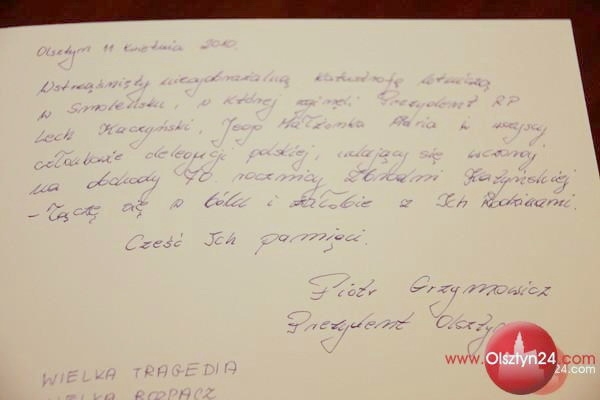 Olsztyn 11 kwietnia 2010.
Wstrząśnięty niewyobrażalną katastrofą lotniczą
w Smoleńsku, w której zginęli Prezydent RP
Lech Kaczyński, Jego Małżonka Maria i wszyscy
członkowie delegacji polskiej, udający się wczoraj
na obchody 70. rocznicy Zbrodni Katyńskiej
- Łączę się w bólu i żałobie z Ich Rodzinami.
Cześć Ich pamięci.
Piotr Grzymowicz
Prezydent Olsztyna
www.Olsztyn24.com
24.com
WIELKA TRAGEDIA
WIELKA ROZPACZ